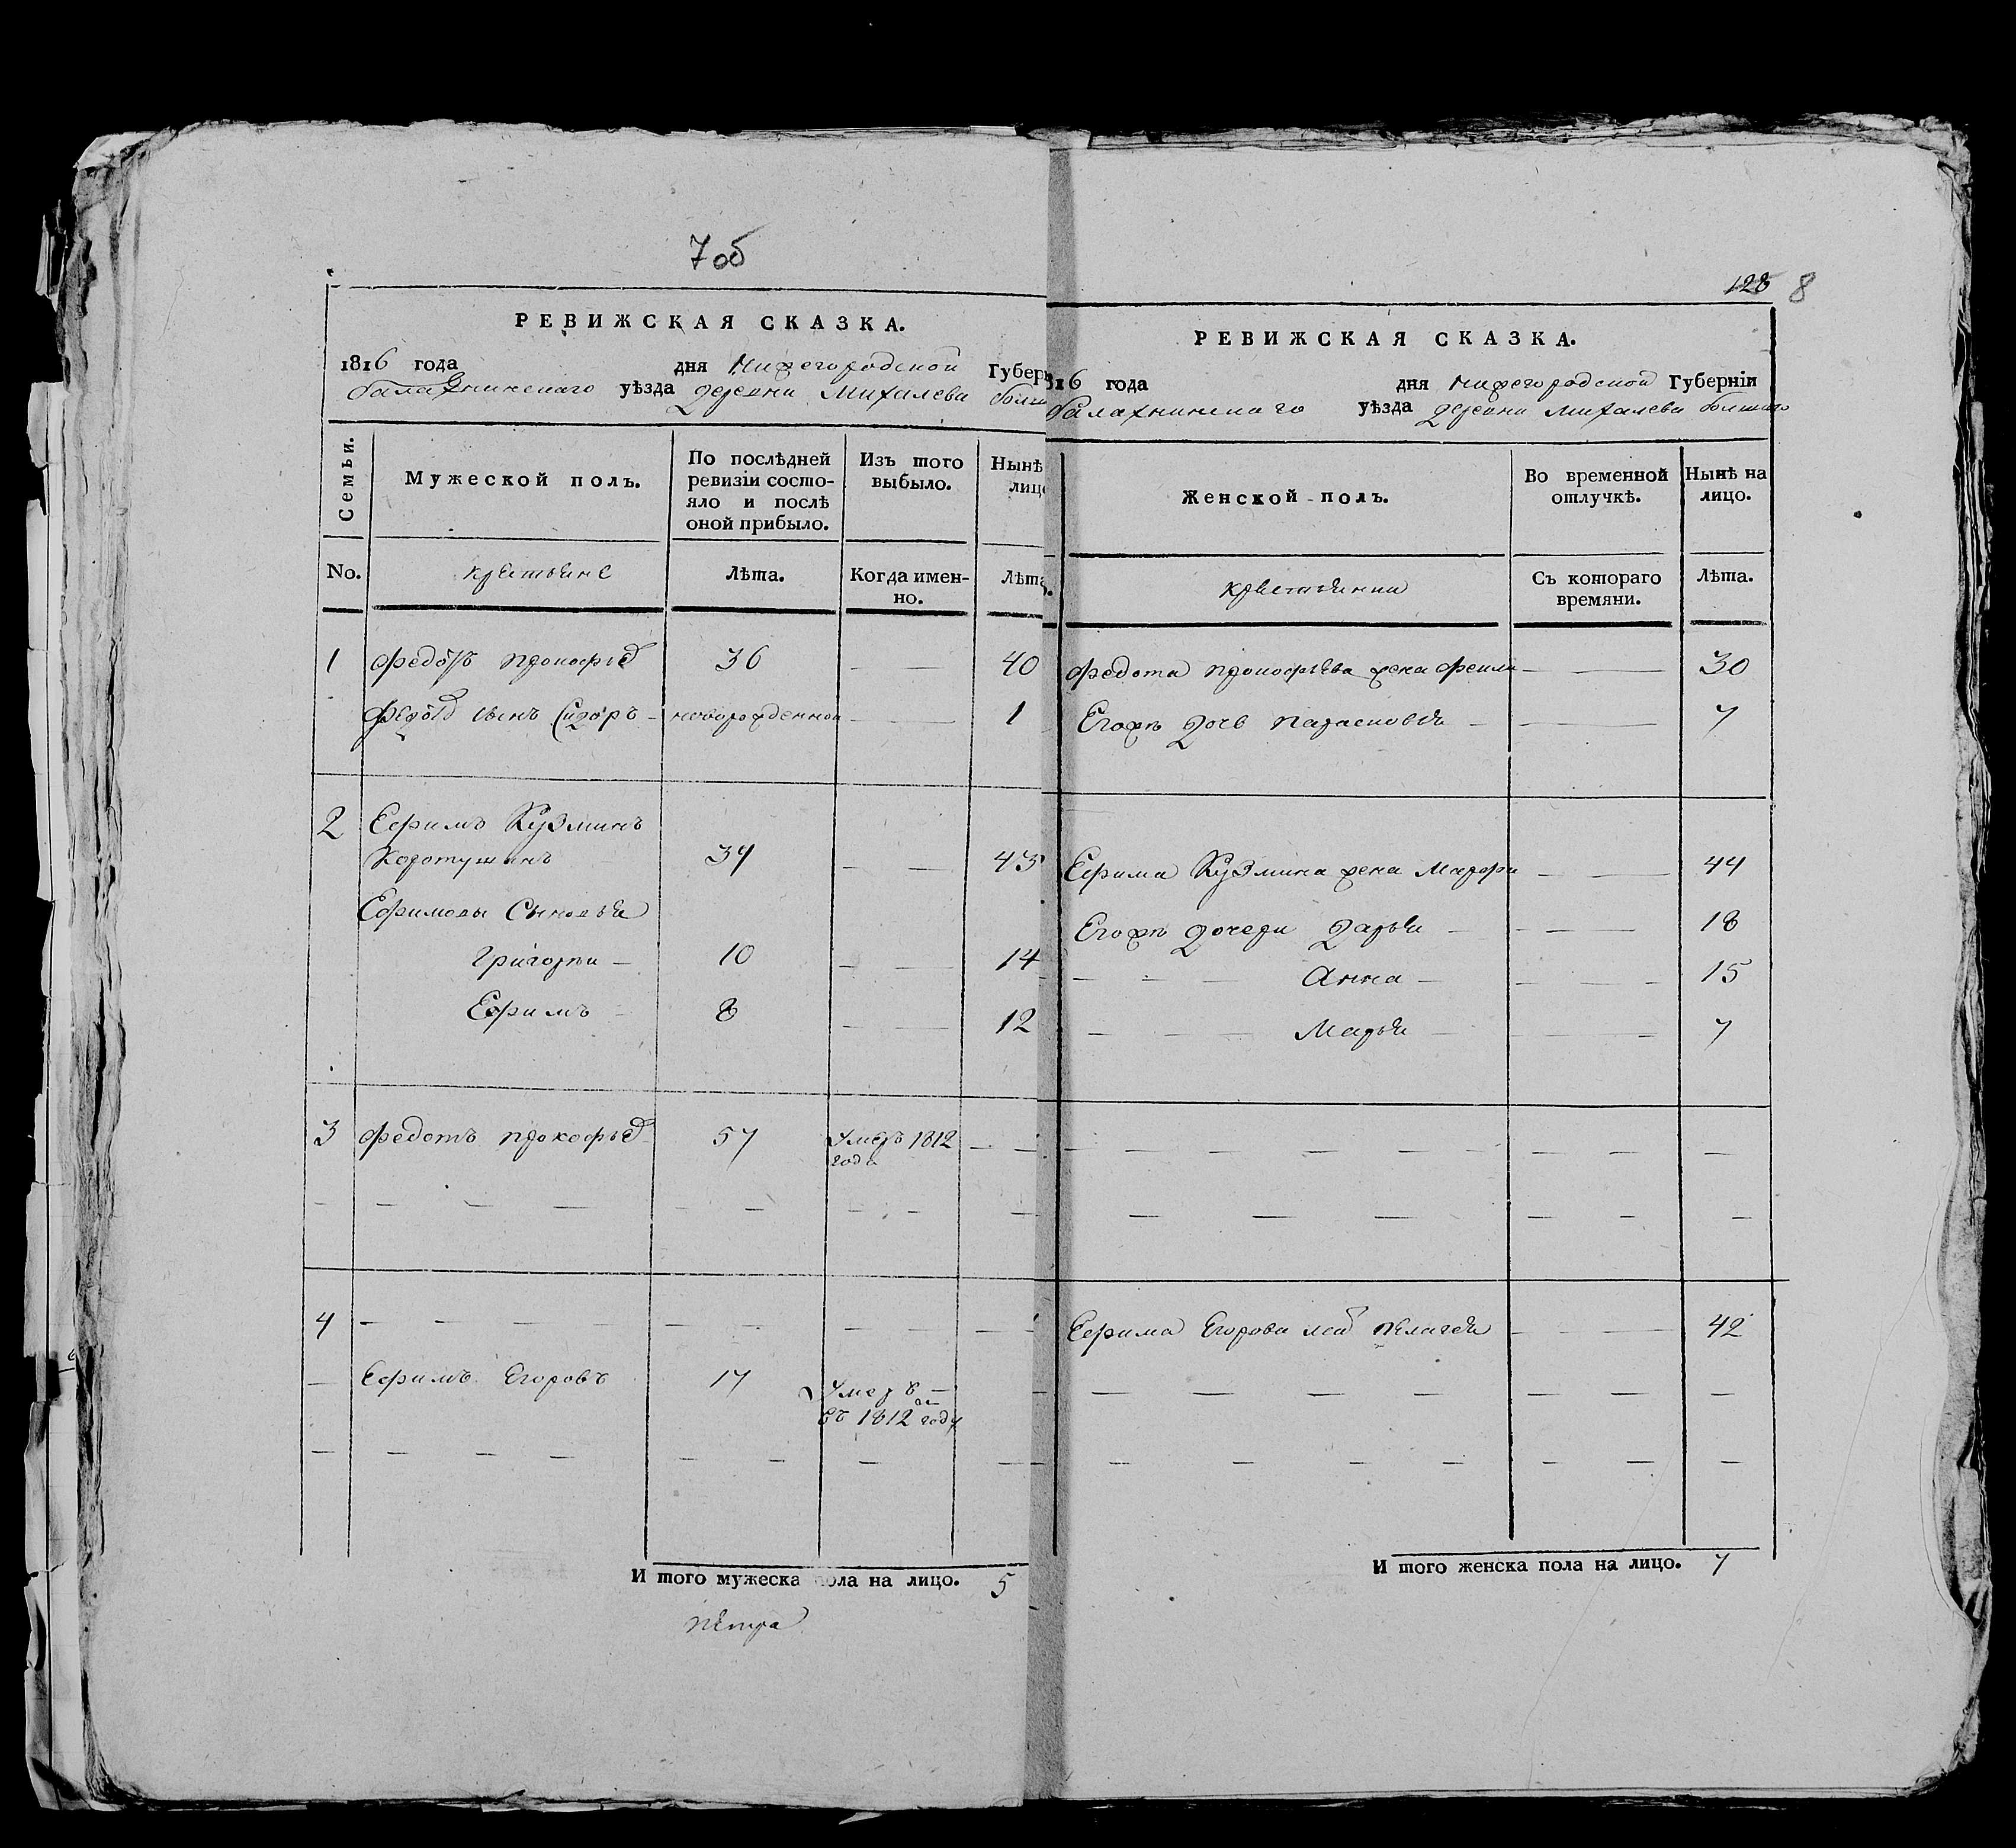 7 об
РЕВИЖСКАЯ СКАЗКА.
1816 года дня Нижегородской Губерн
балахнинскаго уѣзда деревни Михалева болш
Семьи.
Мужеской полъ.
По послѣдней ревизіи состо-
яло и послѣ
оной прибыло.
Изъ того
выбыло.
Нынѣ
лицо
No.
крестьяне
Лѣта.
Когда имен-
но.
Лѣта
1 Федотъ прокофьев 36 — — 40
Федотов сынъ Сидоръ — новорожденной — — 1
2 Ефимъ Кузминъ
Коротушинъ 39 — — 43
Ефимовы Сыновья
Григорьи — 10 — — 14
Ефимъ — 8 — — 12
3 Федотъ прокофьев 57 Умеръ 1812 — —
года
— — — — — — — — —
4 — — — — — — — — — —
— Ефимъ Егоровъ 17 Умеръ —
въ 1812 году
— — — — — — — —
И того мужеска пола на лицо. 5
Петра
128 8
РЕВИЖСКАЯ СКАЗКА.
816 года дня нижегородской Губерніи
балахнинскаго уѣзда деревни михалева болшаго
Женской полъ.
Во временной
отлучкѣ.
Нынѣ на
лицо.
крестьянки
Съ котораго
времяни.
Лѣта.
Федота прокофьева жена — — 30
Егожъ дочь парасковья — — — 7
Ефима Кузмина жена Марфа — — 44
Егожъ дочери Дарья — — — 18
— — — Анна — — — — 15
— — — Марья — — — — 7
— — — — — — — — —
— — — — — —
Ефима Егорова пелагея — — 42
— — — — — — —
— — — — — — —
И того женска пола на лицо. 7